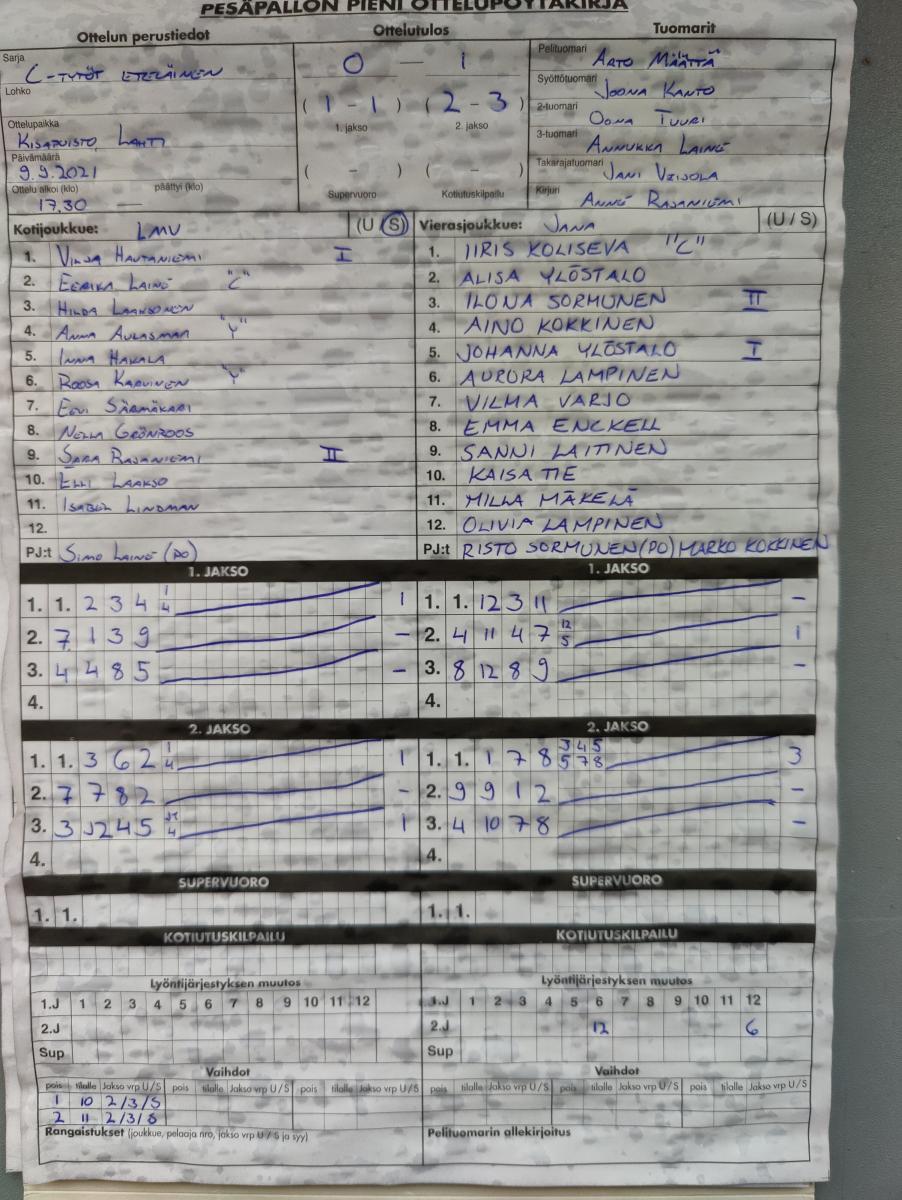 PESÄPALLON PIENI OTTELUPÖYTÄKIRJA
Ottelun perustiedot
Sarja C-TYTÖT ETELÄINEN
Lohko
Ottelupaikka
KISAPUISTO, LAHTI
Päivämäärä
9.9.2021
Ottelu alkoi (klo) päättyi (klo)
17.30 —
Ottelutulos
0 — 1
( 1 - 1 ) ( 2 - 3 )
1. jakso 2. jakso
( - ) ( - )
Supervuoro Kotiutuskilpailu
Tuomarit
Pelituomari ARTO MÄÄTTÄ
Syöttötuomari JOONA KANTO
2-tuomari OONA TUURI
3-tuomari ANNUKKA LAINE
Takarajatuomari JANI
Kirjuri ANNE RAJANIEMI
Kotijoukkue: LMV (U / S)
1. VILJA HAUTANIEMI I
2. EERIKA LAINE "C"
3. HILDA LAAKSONEN
4. ANNA "Y"
5. INNA HAKALA
6. ROOSA KARVINEN "Y"
7. EEVI SÄRMÄKARI
8. NELLA GRÖNROOS
9. SARA RAJANIEMI II
10. ELLI LAAKSO
11. LINDMAN
12.
PJ:t SIMO LAINE (PO)
Vierasjoukkue: JANA (U / S)
1. IIRIS KOLISEVA "C"
2. ALISA YLÖSTALO
3. ILONA SORMUNEN II
4. AINO KOKKINEN
5. JOHANNA YLÖSTALO I
6. AURORA LAMPINEN
7. VILMA VARJO
8. EMMA ENCKELL
9. SANNI LAITINEN
10. KAISA TIE
11. MILLA MÄKELÄ
12. OLIVIA LAMPINEN
PJ:t RISTO SORMUNEN (PO) MARKO KOKKINEN
1. JAKSO
1. 1. 2 3 4 1 4 1
2. 7 1 3 9 –
3. 4 4 8 5 –
4.
1. JAKSO
1. 1. 12 3 11 –
2. 4 11 4 7 12 5 1
3. 8 12 8 9 –
4.
2. JAKSO
1. 1. 3 6 2 1 4 1
2. 7 7 8 2 -
3. 3 J2 4 5 4 1
4.
2. JAKSO
1. 1. 1 7 8 3 4 5 5 7 8 3
2. 9 9 1 2 –
3. 4 10 7 8 –
4.
SUPERVUORO
1. 1.
SUPERVUORO
1. 1.
KOTIUTUSKILPAILU
KOTIUTUSKILPAILU
Lyöntijärjestyksen muutos
1.J 1 2 3 4 5 6 7 8 9 10 11 12
2.J
Sup
Lyöntijärjestyksen muutos
1.J 1 2 3 4 5 6 7 8 9 10 11 12
2.J 12 6
Sup
Vaihdot
pois tilalle Jakso vrp U/S pois tilalle Jakso vrp U/S pois tilalle Jakso vrp U/S
1 10 2/3/S
2 11 2/3/S
Vaihdot
pois tilalle Jakso vrp U/S pois tilalle Jakso vrp U/S pois tilalle Jakso vrp U/S
Rangaistukset (joukkue, pelaaja nro, jakso vrp U / S ja syy)
Pelituomarin allekirjoitus